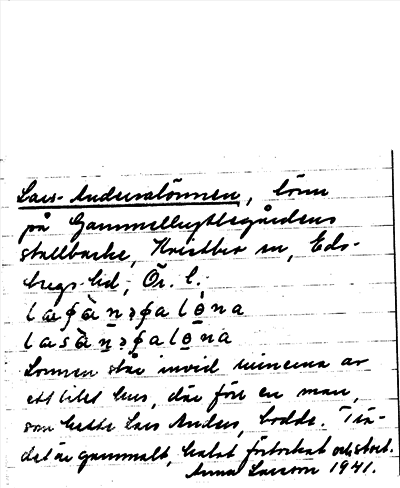 Lars-Anderslönnen, lönn
på Gammelhyttegårdens
stallbacke, Kvistbro sn, Eds-
bergs hd, Ör. l.
Lönnen står invid ruinerna av
ett litet hus, där förr en man,
som hette Lars Anders, bodde. Trä-
det är gammalt, halvt förtorkat och stort.
Anna Larsson 1941.